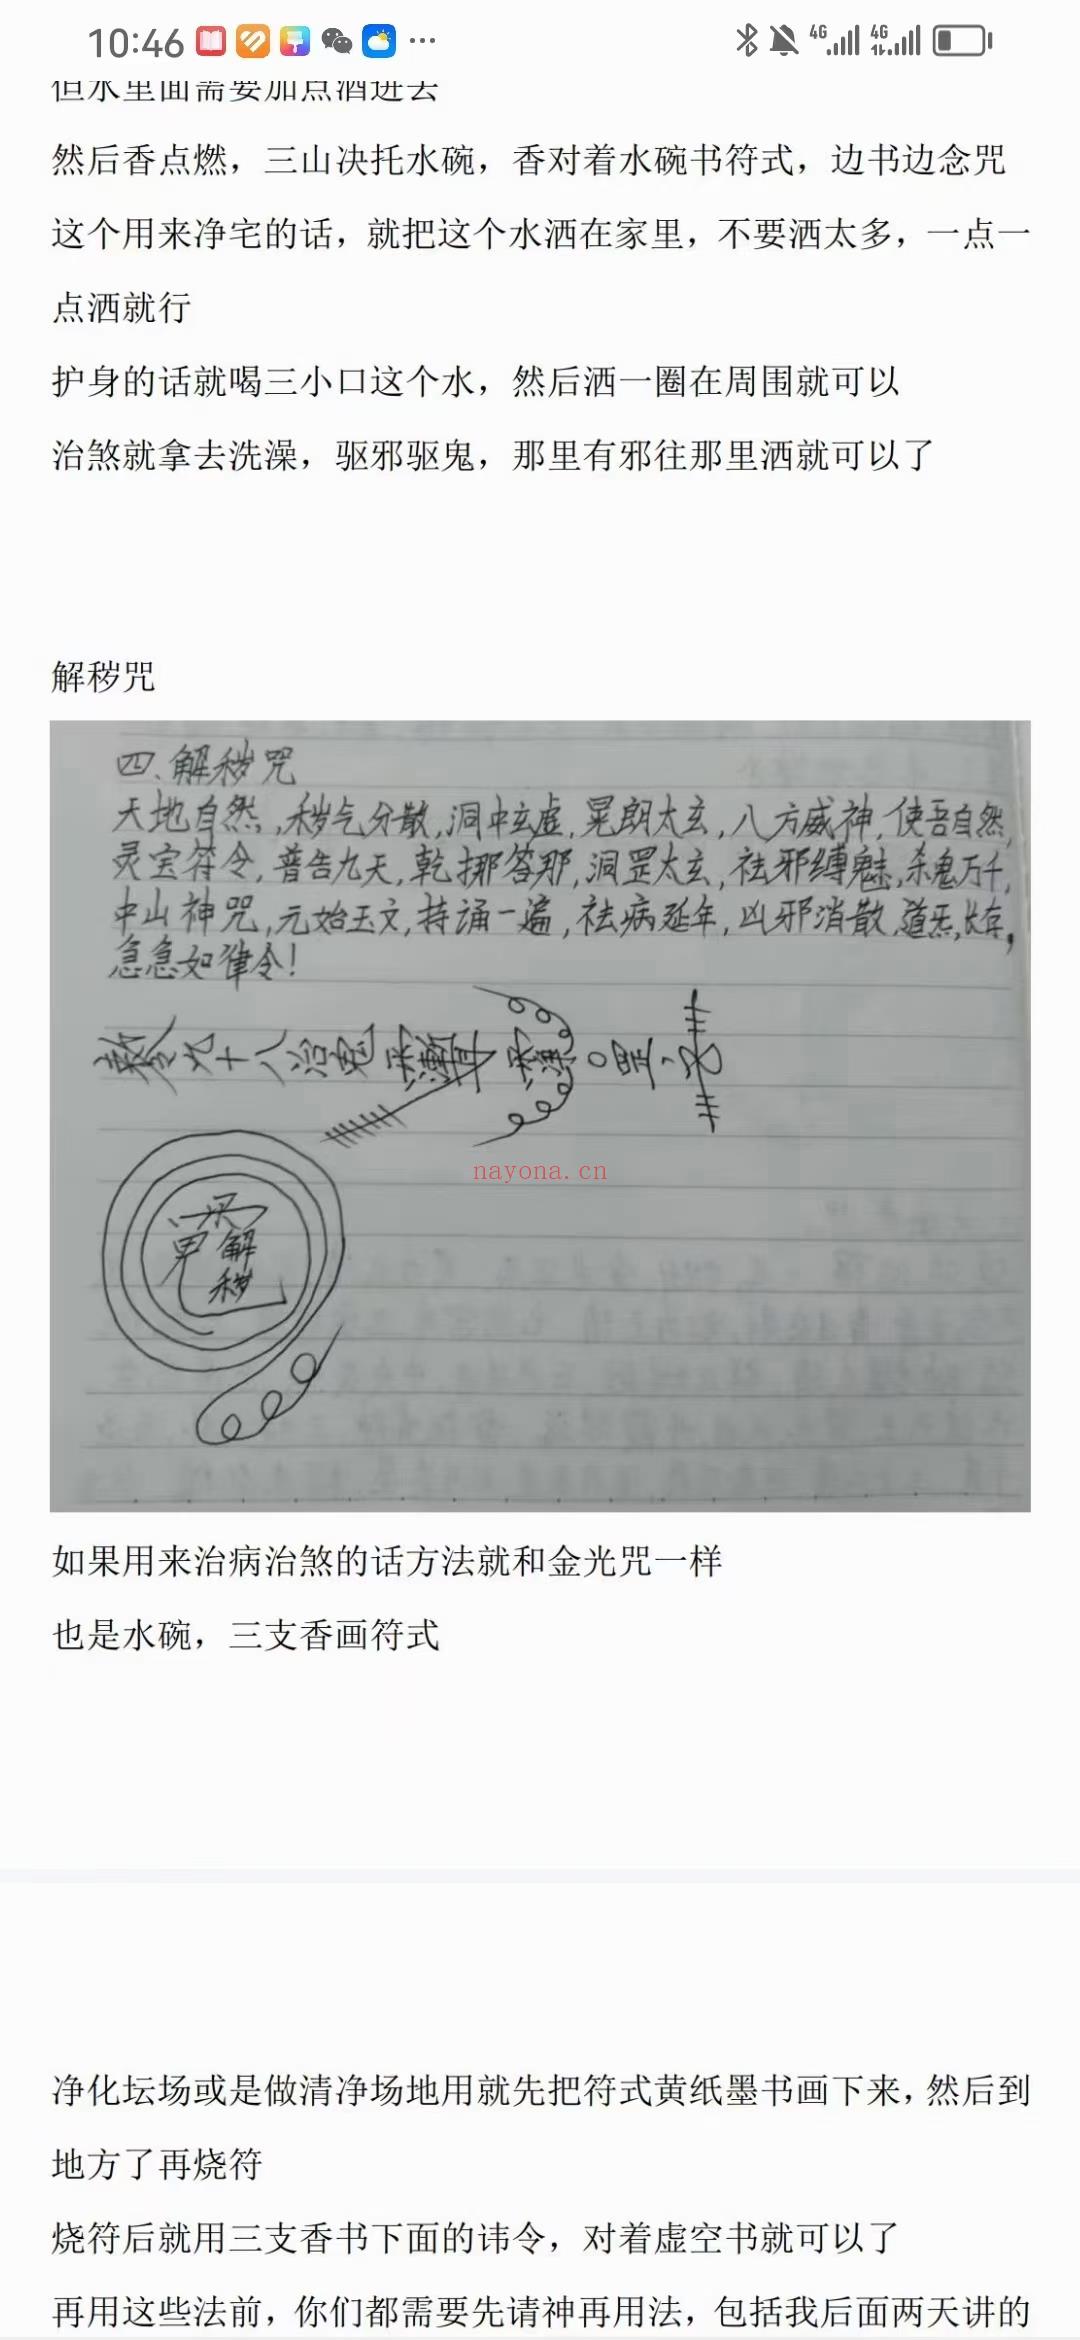 10:46
4G 4G
但水里面需要加点酒进去
然后香点燃，三山决托水碗，香对着水碗书符式，边书边念咒
这个用来净宅的话，就把这个水洒在家里，不要洒太多，一点一
点洒就行
护身的话就喝三小口这个水，然后洒一圈在周围就可以
治煞就拿去洗澡，驱邪驱鬼，那里有邪往那里洒就可以了
解秽咒
四、解秽咒
天地自然，秽气分散，洞中玄虚，晃朗太玄，八方威神，使吾自然，
灵宝符令，普告九天，乾挪答那，洞罡太玄，祛邪缚魅，杀鬼万千，
中山神咒，元始玉文，持诵一遍，祛病延年，凶邪消散，道炁长存，
急急如律令！
nayona.cn
解
秽
如果用来治病治煞的话方法就和金光咒一样
也是水碗，三支香画符式
净化坛场或是做清净场地用就先把符式黄纸墨书画下来，然后到
地方了再烧符
烧符后就用三支香书下面的讳令，对着虚空书就可以了
再用这些法前，你们都需要先请神再用法，包括我后面两天讲的